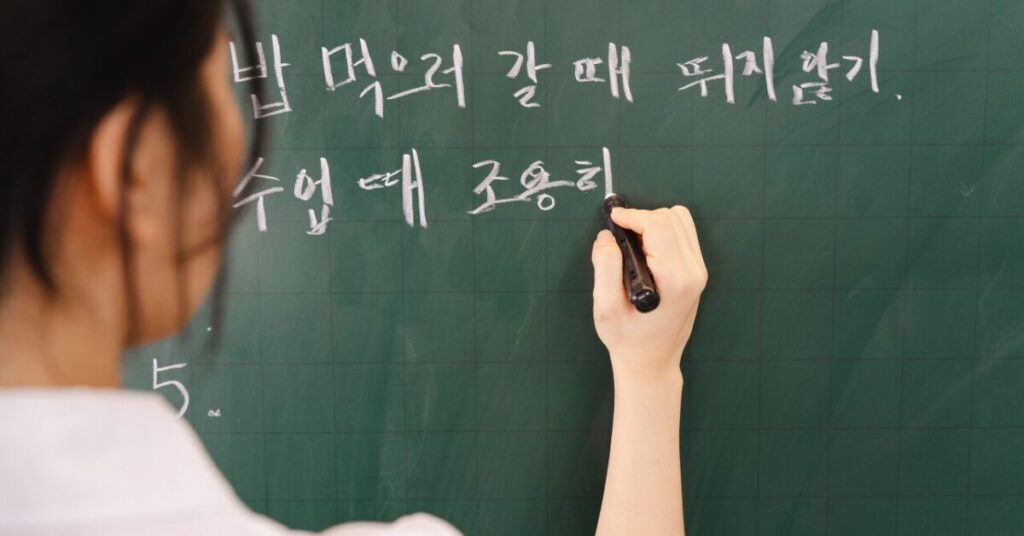 밥 먹으러 갈 때 뛰지 않기.
수업 때 조용히
5.